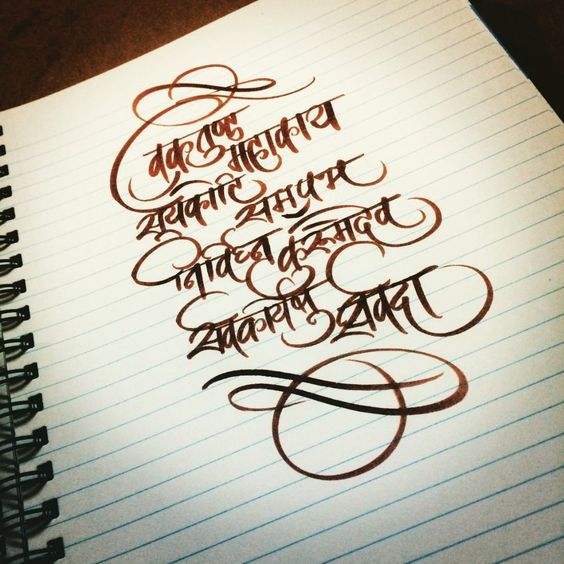 वक्रतुण्ड महाकाय
सूर्यकोटि समप्रभ
निर्विघ्नं कुरूमेदेव
सर्वकार्येषु सर्वदा